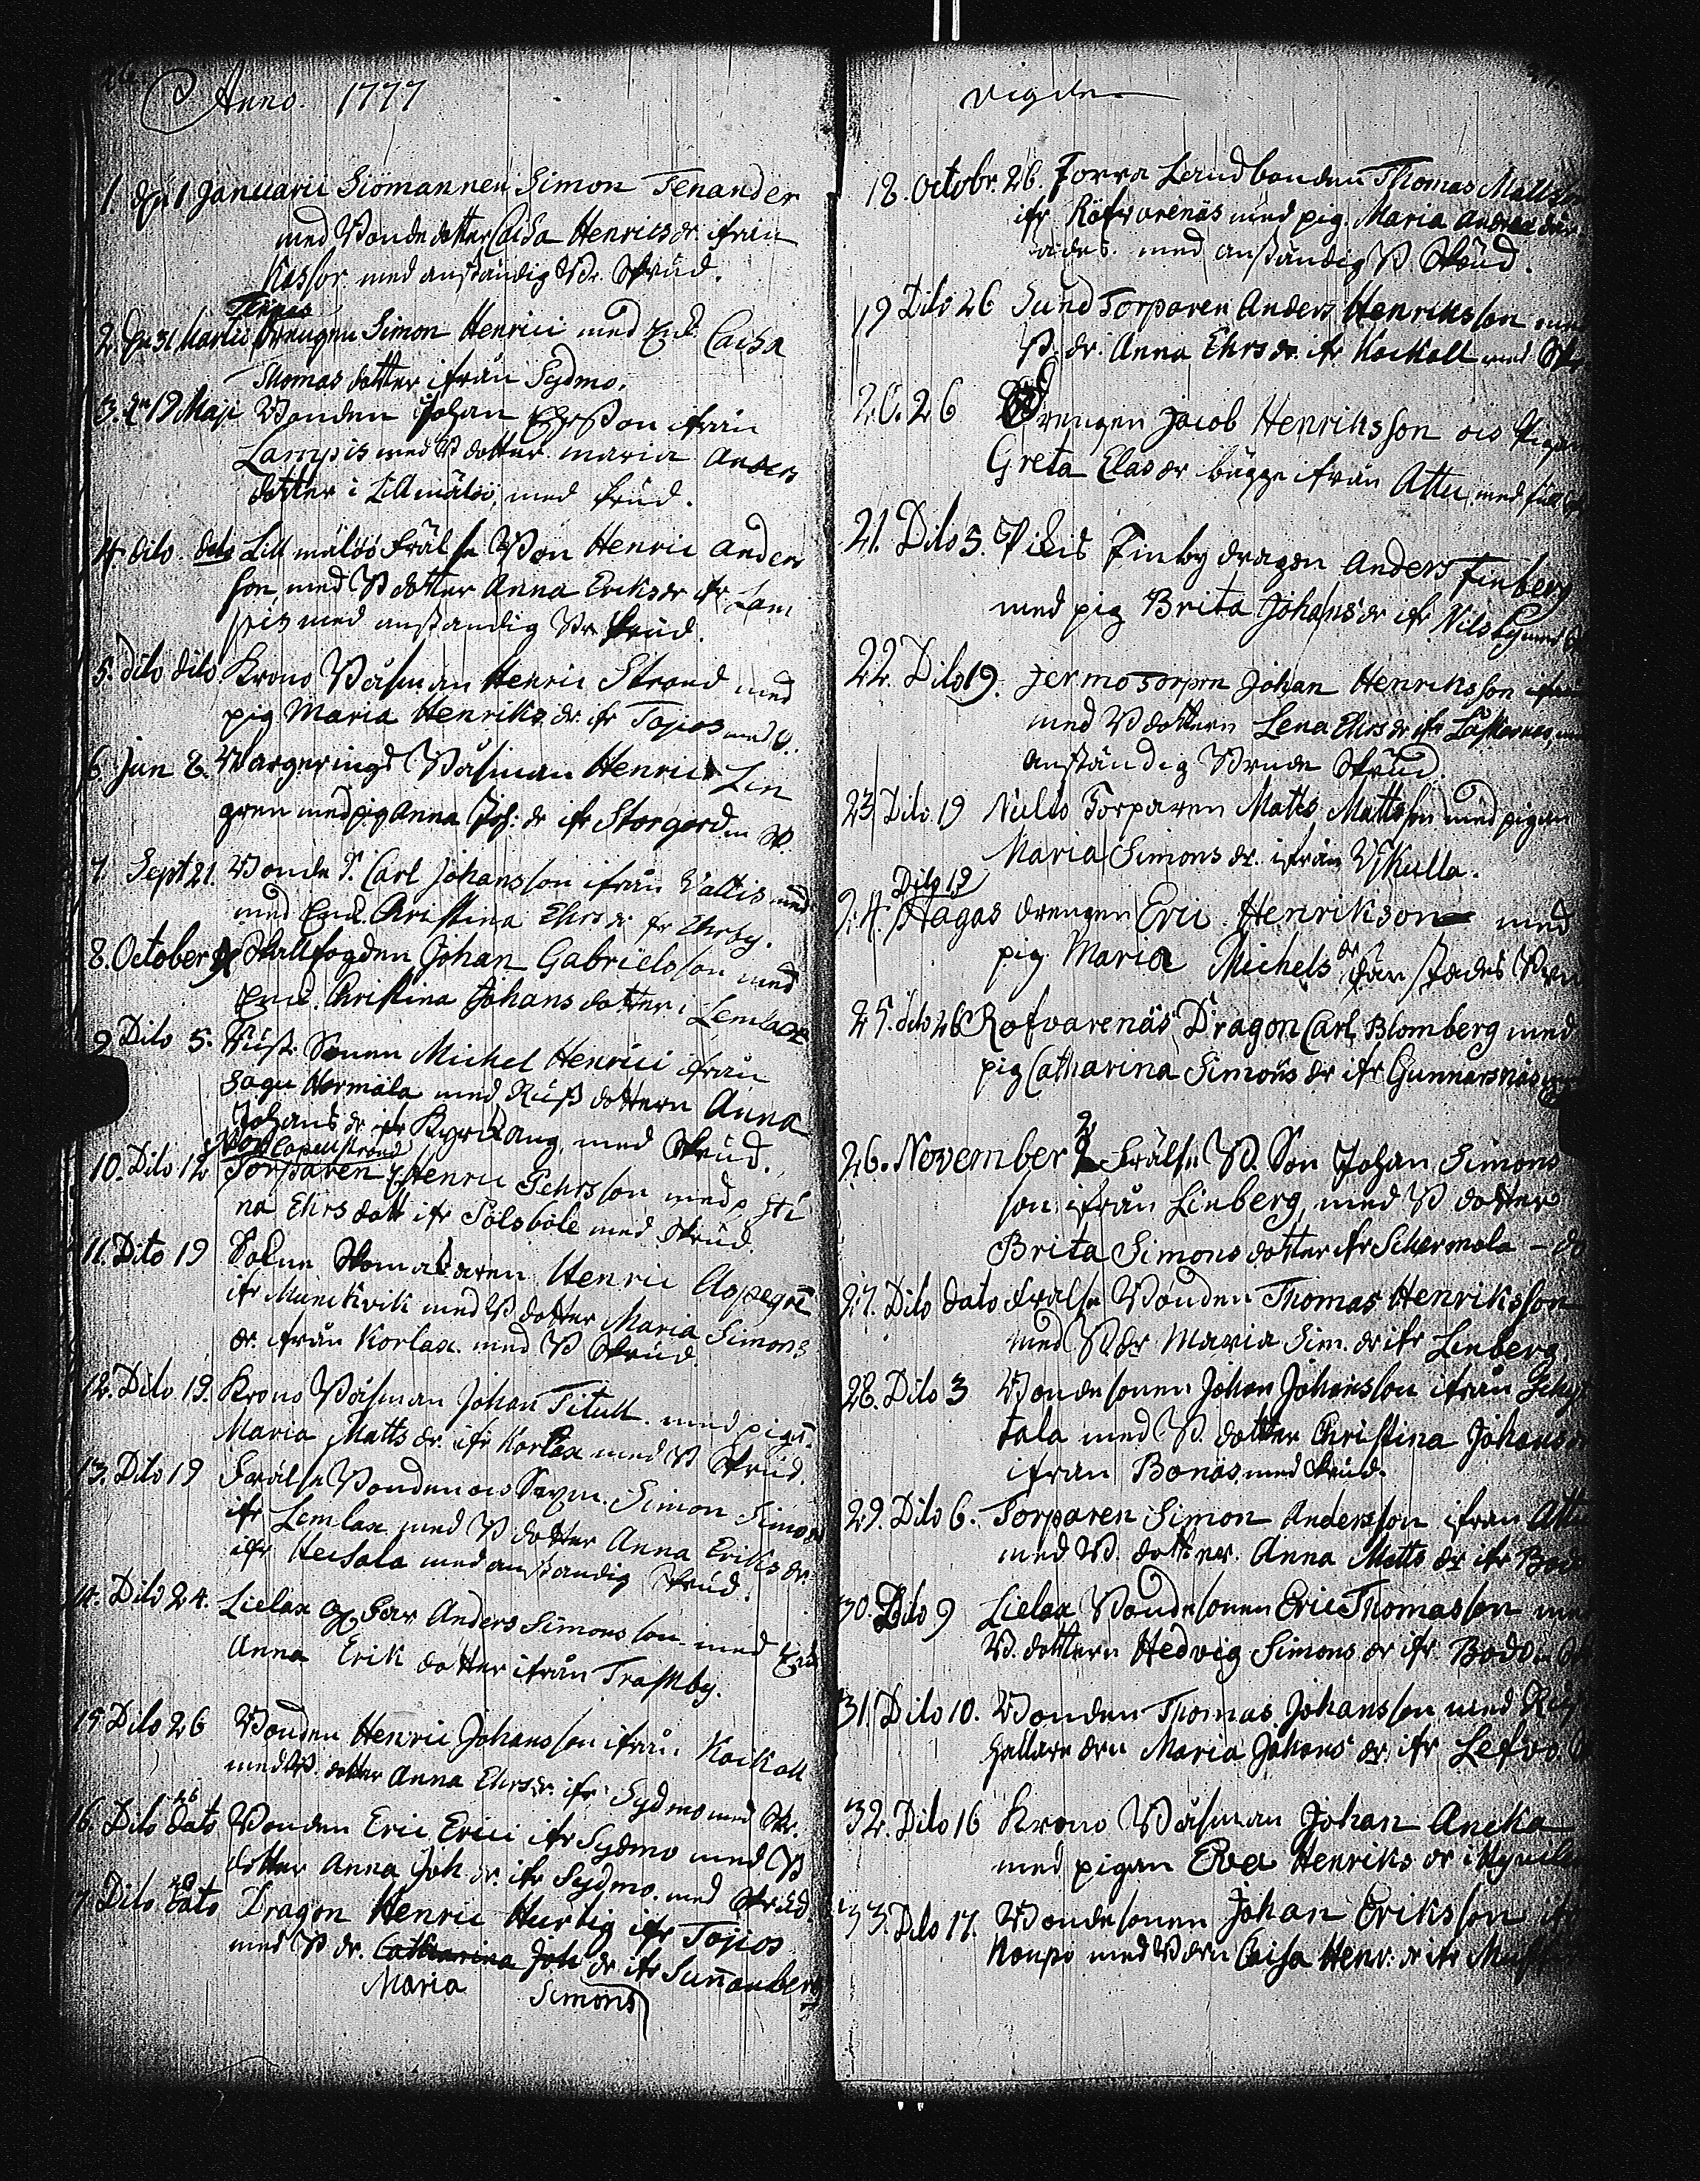 Anno. 1777
1. d. 1 Januarii Siömannen Simon Tenander
med Bonde dotter Caisa Henrics dr ifrån
Kassor med anständig Br. Skrud.
2. d. 31 Martii Drengen Simon Henrici med Enk. Caisa
Thomas dotter ifrån Sydmo.
3. d. 19 Maji Bonden Johan Ersson ifrån
Lampis med B dotter Maria Anders
dotter i Lillmälöö, med skrud.
4. dito dito Lill mälöö Frälse Bon Henric Anders
son, med B dotter Anna Eriks dr ifr Lam
pis med anständig Br skrud.
5. dito dito Krono Båtsman Henric Strand med
pig Maria Henriks dr. ifr Tojios med
6. Jun 8. Båtsman Henric Lin
gren med pig Anna Joh: dr ifr Storgård
7. Sept 21. Bonde S. Carl Johansson ifrån Vallis med
med Enk. Christina Ehrs dr fr Ehrby.
8. October Stallfogden Johan Gabrielsson med
Enk. Christina Johans dotter i Lemlax
9 Dito 5. Rust. Sonen Michel Henrici ifrån
Sagu Hormäla med Rust dottern Anna
Johans dr ifr Kyrklang, med Skrud.
10. Dito 12 Torparen Henric Gehrsson med p. Sti
na Ehrs dott ifr Sölsböle med Skrud.
11. Dito 19 Sokne Skomakaren Henric Aspegrē
ifr Munckvik med B dotter Maria Simons
dr. ifrån Korlax. med B Skrud.
12. Dito 19. Krono Båtsman Johan Titull med pigē.
Maria Matts dr. ifr Korlax med B Skrud.
13. Dito 19 Frälse Bonden oc Simon Simons
ifr Lemlax med B dotter Anna Eriks dr.
ifr Heisala med anständig Skrud.
14. Dito 24. Lielax Anders Simonsson med Enk
Anna Erik dotter ifrån Traskby.
15 Dito 26 Bonden Henric Johansson ifrån Koikoll
med B. dotter Anna Ehrs dr. ifr Sydmo med Skr.
16. Dito dato 26 Bonden Eric Erici ifr Sydmo med B
dotter Anna Joh dr. ifr Sydmo. med Skrud.
17 Dito dato 26 Dragon Henric Hurtig ifr Tojios
med B dr. Catharina Joh dr ifr Sunnanberg
Maria Simons
vigde
18. Octobr. 26. Forra Landbonden Thomas Matts
ifr Röfvarenäs med pig. Maria Andrea
med anständig B Skrud.
19 Dito 26 Sund Torparen Anders Henriksson
B. dr. Anna Ehrs dr. ifr Koikoll med
20. 26 Drengen Jacob Henriksson oc Pigan
Greta Elas dr bägge ifrån Attu, med
21. Dito 5. Finby dragon Anders Finberg
med pig Brita Johans dr ifr Nilsby med
22. Dito 19. Jermo torprn Johan Henriksson
med B dottern Lena Ehrs dr ifr
anständig Brude Skrud.
23. Dito 19 Torparen Matts Mattsson med pigan
Maria Simons dr. ifrån Yskulla.
Dito 19
24. Hagas drengen Eric Henrikson med
pig. Maria Michels dr
25. dito 26 Rofvarenäs Dragon Carl Blomberg med
pig Catharina Simons dr ifr Gunnarsnäs
26. November 2 Frälse B. Son Johan Simons
son ifrån Linberg, med B dotter
Brita Simons dotter ifr Schermola - do
27. Dito dato Frälse Bonden Thomas Henriksson
med B dr Maria Sim. dr ifr Linberg.
28. Dito 3 Bonde sonen Johan Johansson ifrån
tala med B. dotter Christina Johans
ifrån Bonäs med Skrud.
29. Dito 6. Torparen Simon Andersson ifrån Attu
med B. dotter. Anna Matts dr ifr
30. Dito 9 Lielax Bondesonen Eric Thomasson med
B. dottern Hedvig Simons dr ifr.
31. Dito 10. Bonden Thomas Johansson med
hållare drn Maria Johans dr. ifr Lefvo.
32. Dito 16 Krono Båtsman Johan Ancka
med pigan Eva Henriks dr
33. Dito 17. Bondesonen Johan Eriksson
Noupo med B drn Caisa Henr: dr ifr